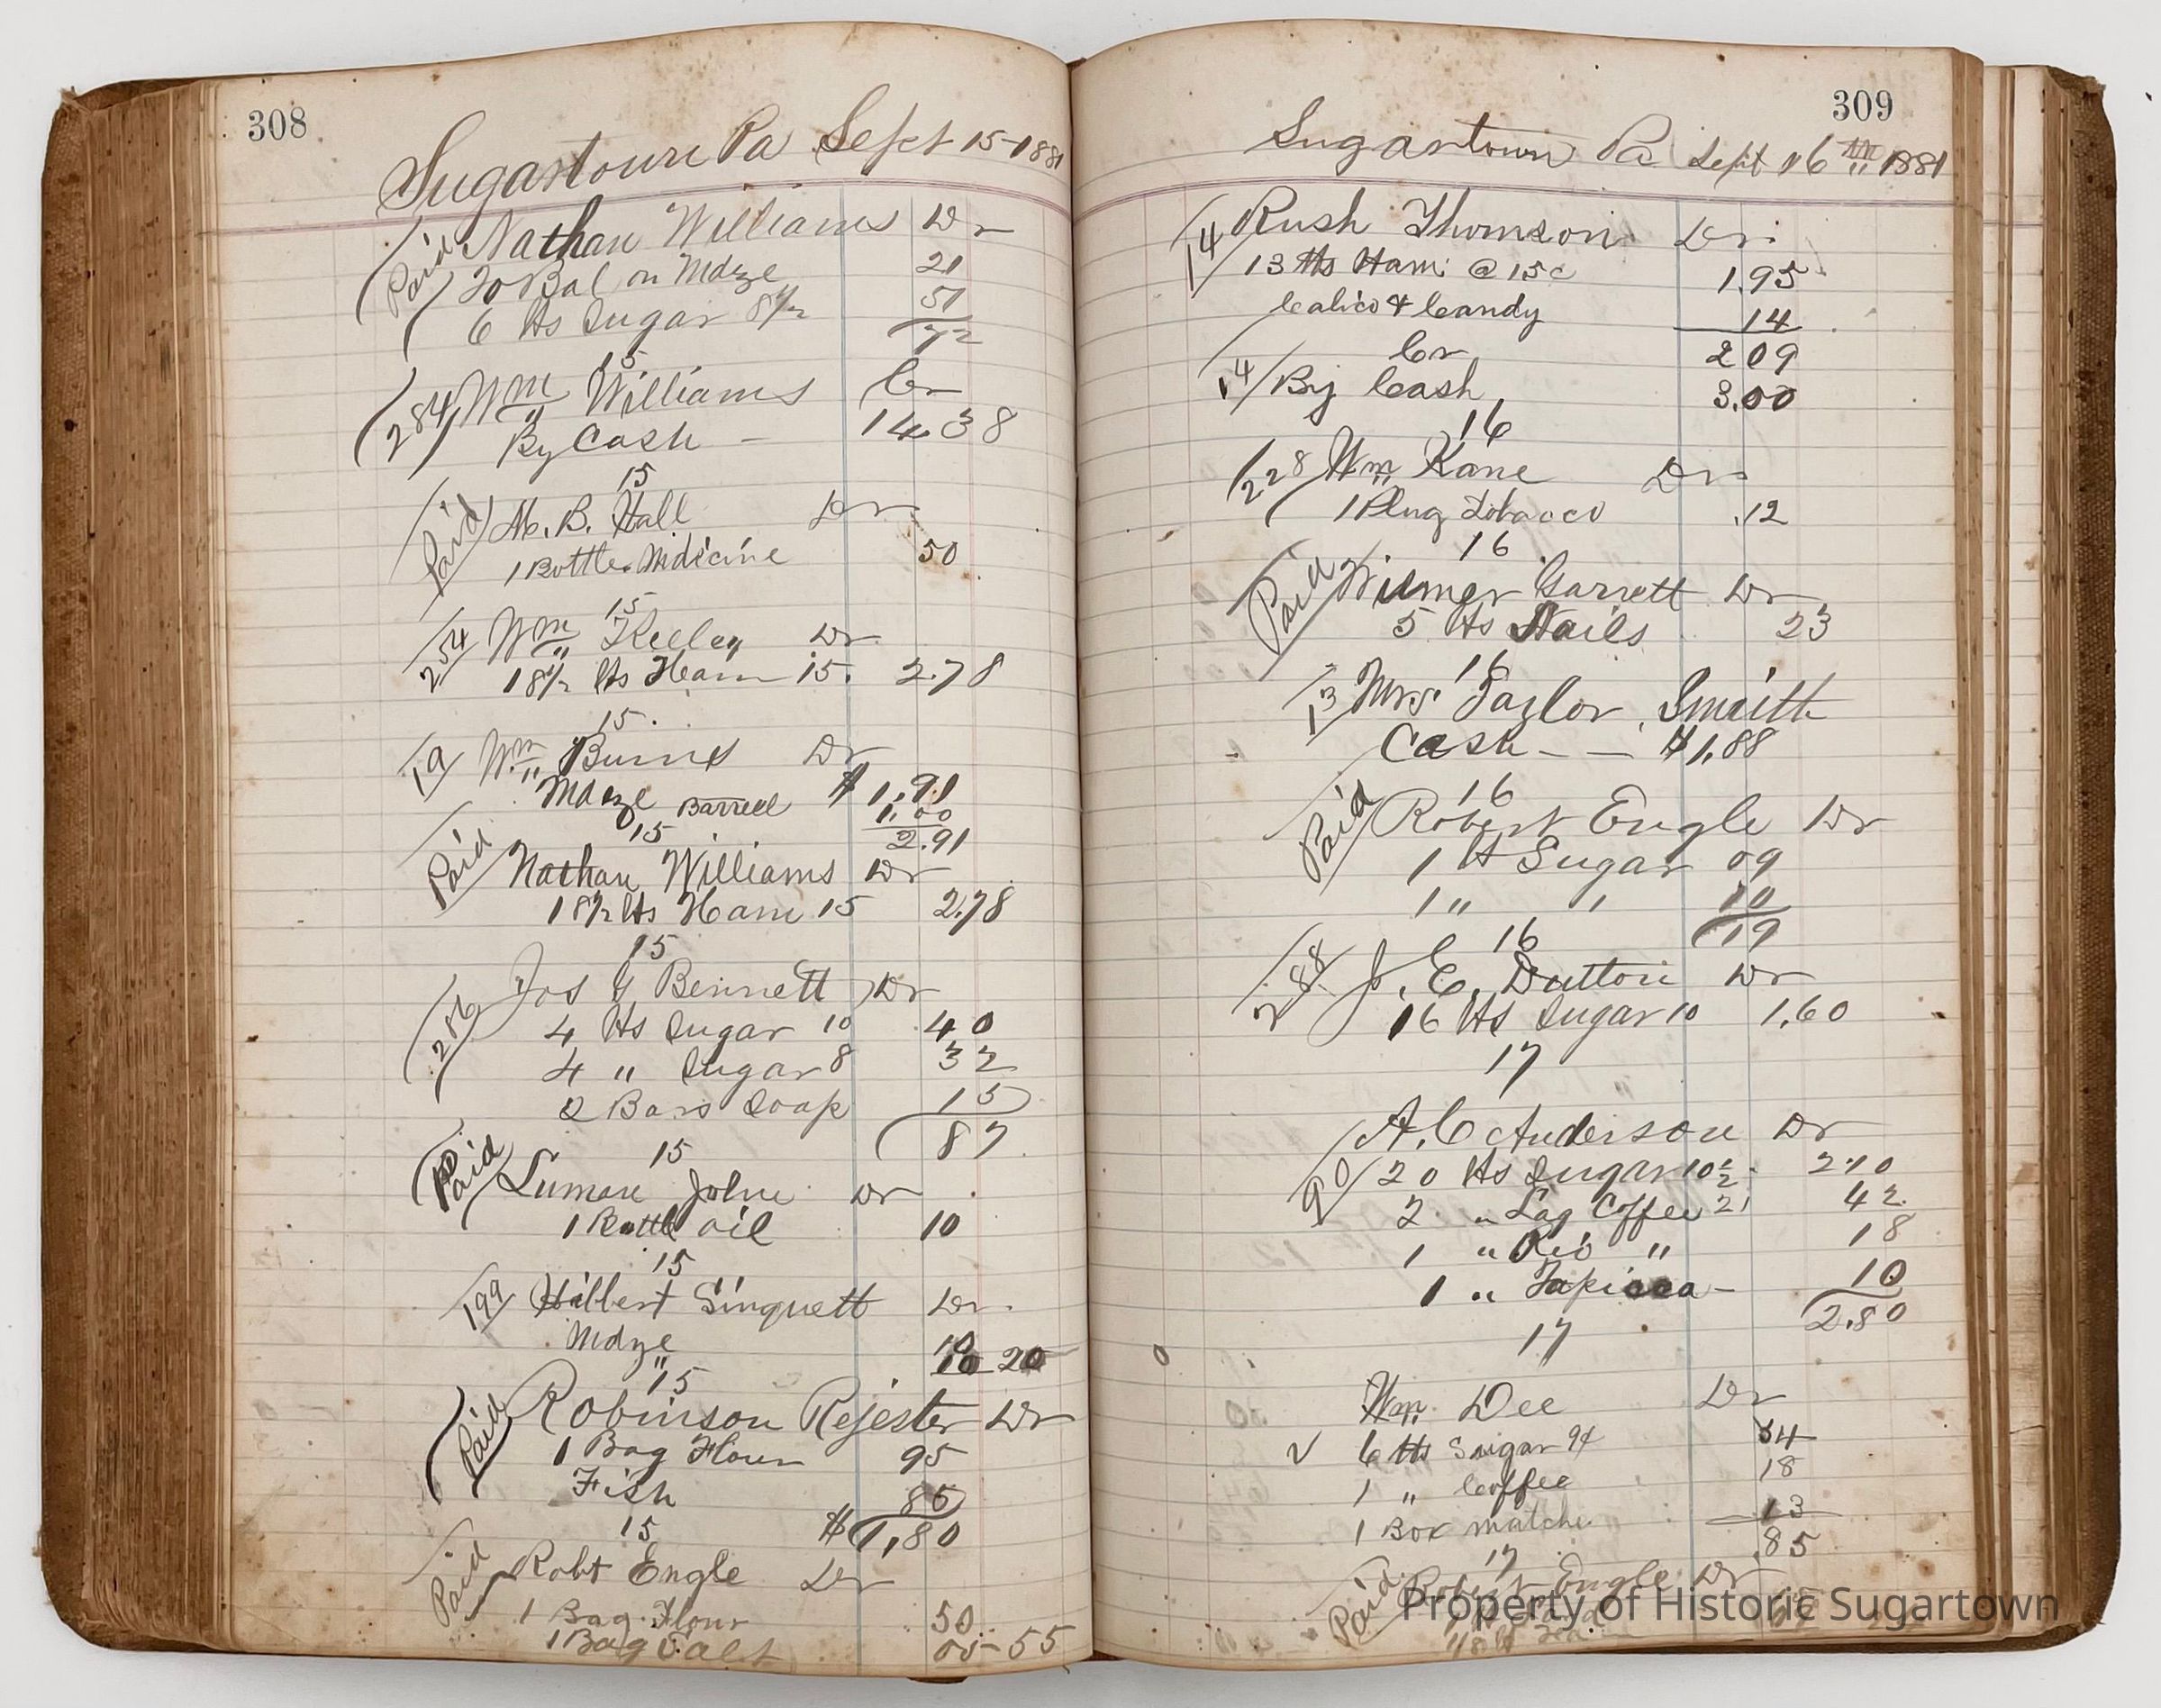 308
Sugartown Pa Sept 15-1881
Paid Nathan Williams Dr
To Bal on Mdze 21
6 lbs Sugar 8½ 51
72
15
284 Wm Williams Cr
By Cash - 14.38
15
Paid M. B. Hall Dr
1 Bottle Mdicine 50
15
254 Wm Keeley Dr
18½ lbs Ham 15. 2.78
15.
Wm Burns Dr
Mdze $1.91
Barrell 1.00
15 2.91
Paid Nathan Williams Dr
18½ lbs Ham 15 2.78
15
286 Jos G Bennett Dr
4 lbs Sugar 10 40
4 " Sugar 8 32
2 Bars Soap 15
87
15
Paid Luman John Dr
1 Bottle oil 10
15
199 Hilbert Singuett Dr.
Mdze 10
10 20
"15
Paid Robinson Rejester Dr
1 Bag Flour 95
Fish 85
15 $1,80
Paid Robt Engle Dr
1 Bag Flour 50
1 Bag Salt 05-55
309
Sugartown Pa Sept 16th 1881
14 Rush Thomson Dr.
13 lbs Ham @ 15c 1.95
Calico & Candy 14
Cr 209
14 By Cash 3.00
16
228 Wm Kane Dr
1 Plug Tobacco .12
16
Paid Wilmer Garrett Dr
5 lbs Nails 23
16
13 Mrs Taylor Smith
Cash - — $1,88
16
Paid Robert Engle Dr
1 lb Sugar 09
1 " " 10
19
16
288 J. E. Dutton Dr
16 lbs Sugar 10 1,60
17
A. C Anderson Dr
90 20 lbs Sugar 10½ 210
2 " Lag Coffee 21 42
1 " Rio " 18
1 " Tapioca - 10
2,80
17
Wm Dee Dr
6 lbs Sugar 9¢ 54
1 " Coffee 18
1 Box matche 13
.85
17
Paid Robert Engle Dr
Property of Historic Sugartown